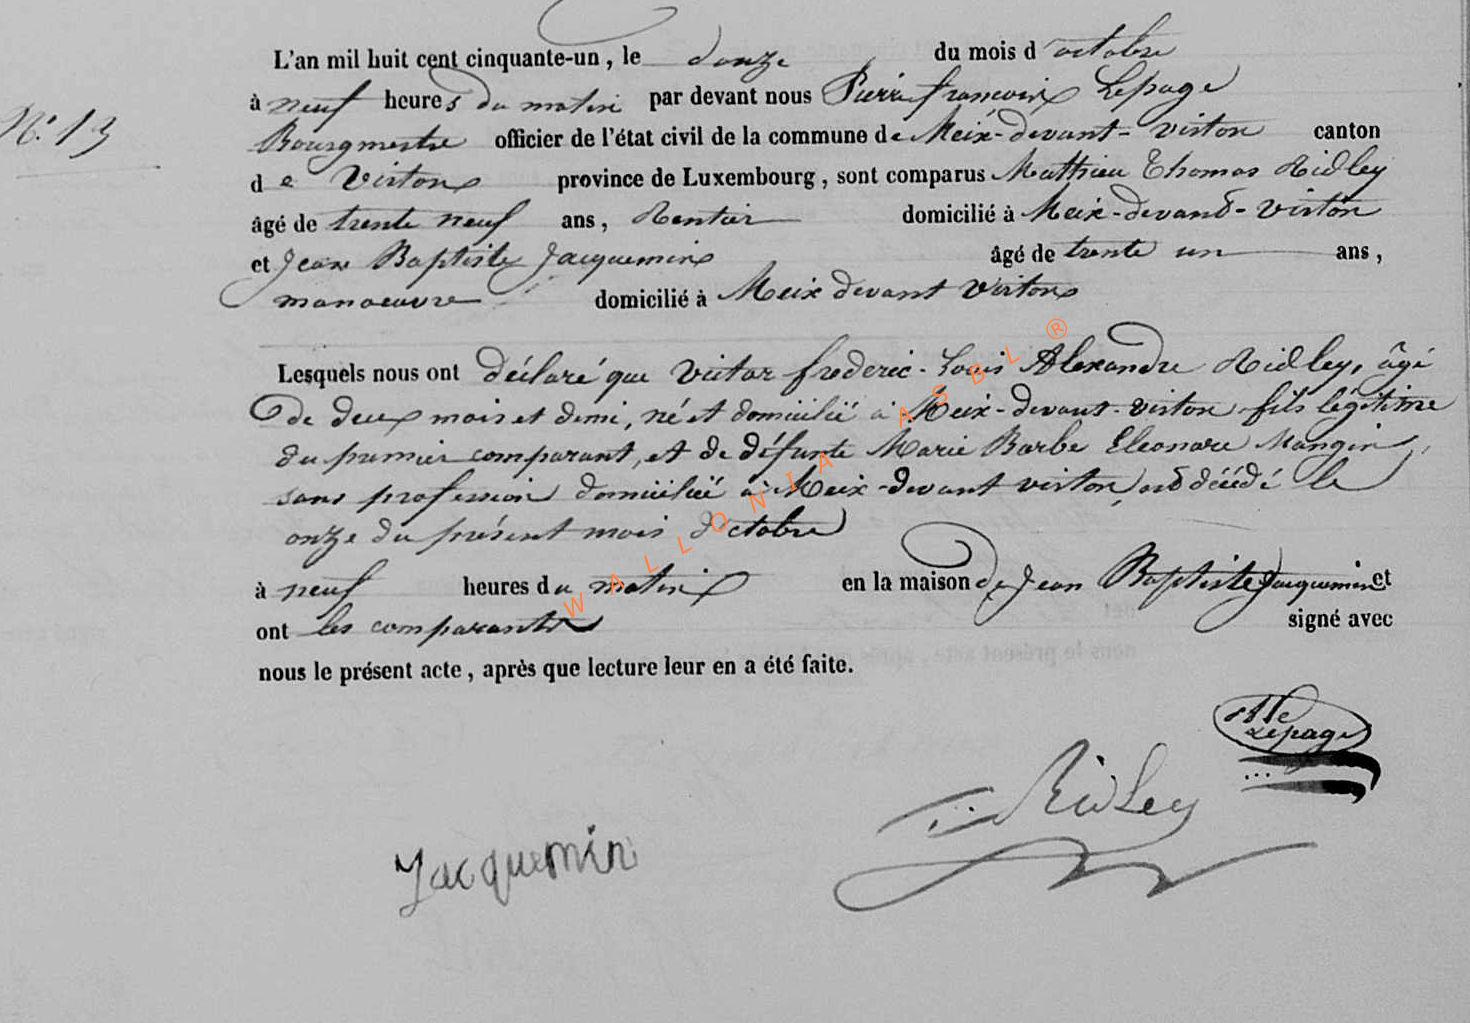 L'an mil huit cent cinquante-un, le douze du mois d'octobre
N° 13
à neuf heures du matin par devant nous Pierre françois Lepage
Bourgmestre officier de l'état civil de la commune de Meix-devant-virton canton
de Virton province de Luxembourg, sont comparus Matthieu Thomas Ridley
âgé de trente neuf ans, Rentier domicilié à Meix-devant-virton
et Jean Baptiste Jacquemin âgé de trente un ans,
manoeuvre domicilié à Meix devant Virton
Lesquels nous ont déclaré que Victor frederic-Louis Alexandre Ridley, âgé
de deux mois et demi, né et domicilié à Meix-devant-virton fils légitime
du premier comparant, et de défunte Marie Barbe Eleonore Mangin,
sans profession domiciliée à Meix-devant virton, est décédé le
onze du présent mois d'octobre
à neuf heures du matin en la maison de Jean Baptiste Jacquemin et
ont les comparants signé avec
nous le présent acte, après que lecture leur en a été faite.
Lepage
Ridley
Jacquemin
WALLONIA ASBL ®